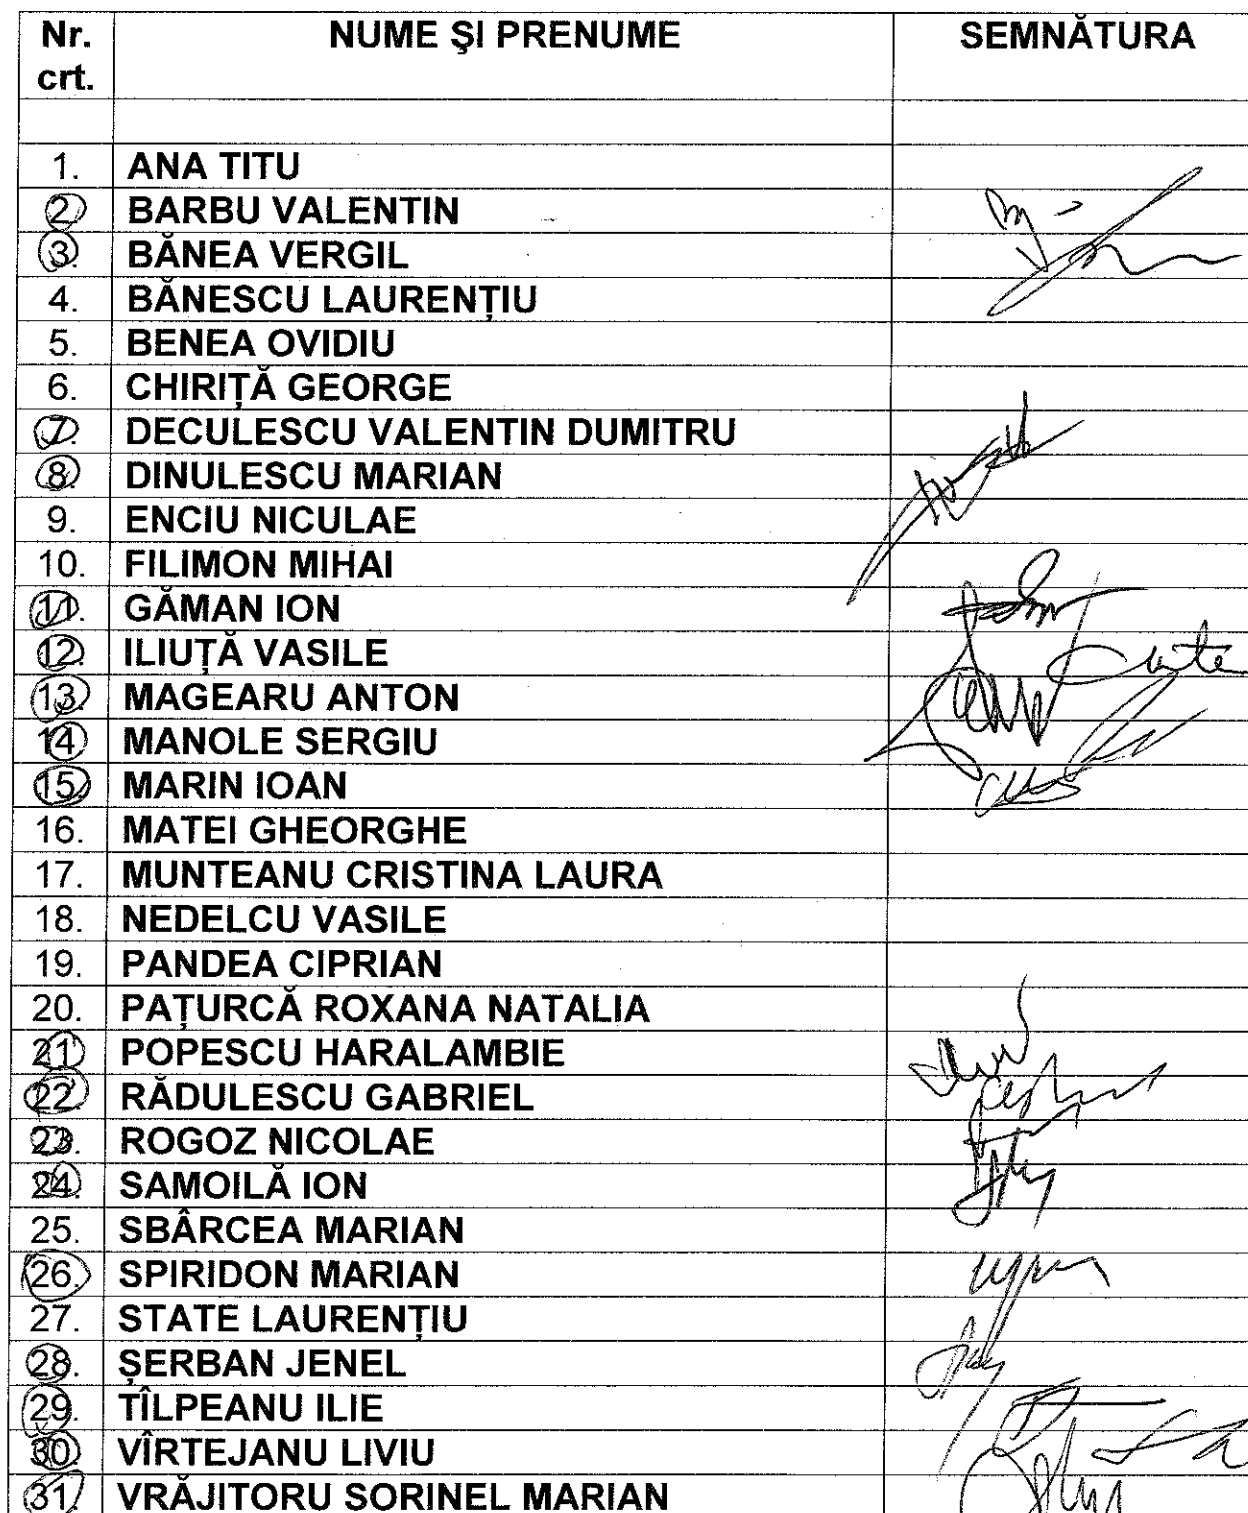 Nr. crt. NUME ŞI PRENUME SEMNĂTURA
1. ANA TITU
2. BARBU VALENTIN
3. BĂNEA VERGIL
4. BĂNESCU LAURENȚIU
5. BENEA OVIDIU
6. CHIRIȚĂ GEORGE
7. DECULESCU VALENTIN DUMITRU
8. DINULESCU MARIAN
9. ENCIU NICULAE
10. FILIMON MIHAI
11. GĂMAN ION
12. ILIUȚĂ VASILE
13. MAGEARU ANTON
14. MANOLE SERGIU
15. MARIN IOAN
16. MATEI GHEORGHE
17. MUNTEANU CRISTINA LAURA
18. NEDELCU VASILE
19. PANDEA CIPRIAN
20. PAȚURCĂ ROXANA NATALIA
21. POPESCU HARALAMBIE
22. RĂDULESCU GABRIEL
23. ROGOZ NICOLAE
24. SAMOILĂ ION
25. SBÂRCEA MARIAN
26. SPIRIDON MARIAN
27. STATE LAURENȚIU
28. ȘERBAN JENEL
29. TÎLPEANU ILIE
30. VÎRTEJANU LIVIU
31. VRĂJITORU SORINEL MARIAN